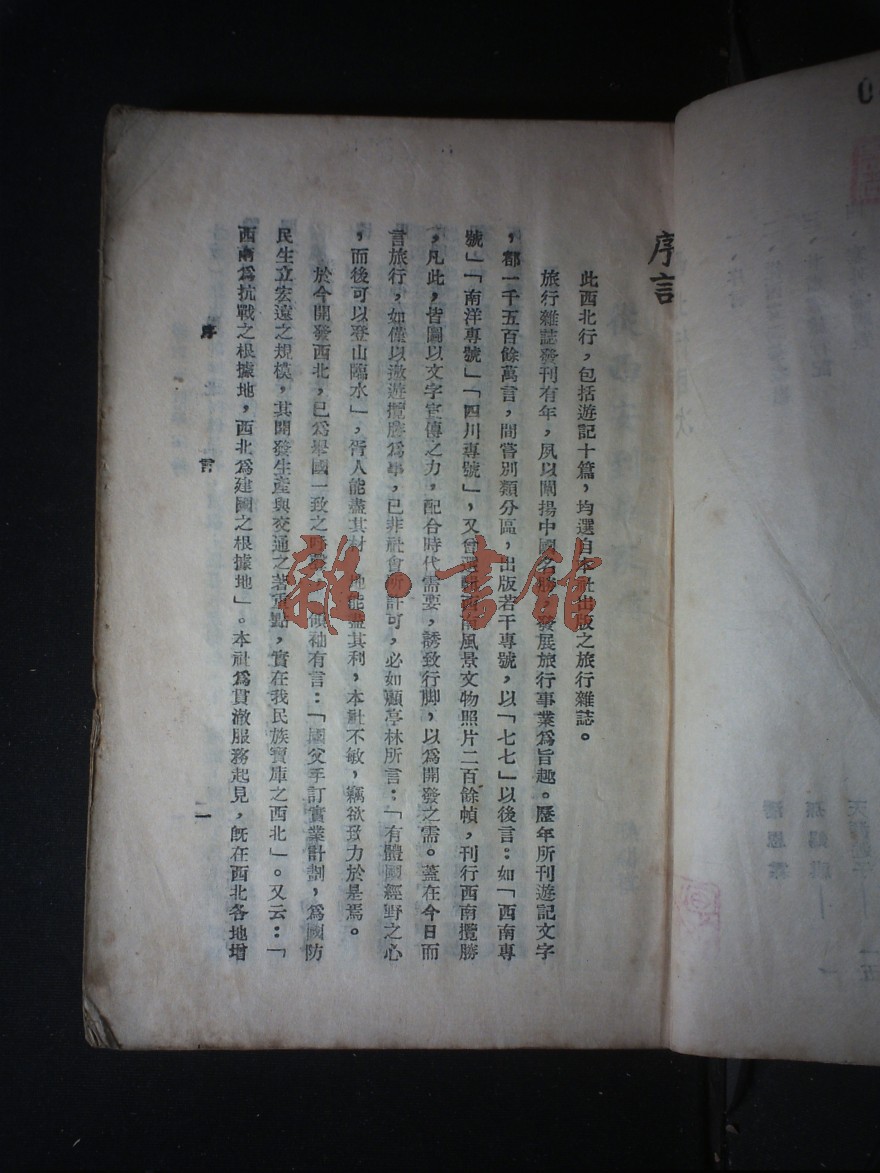 序言
此西北行，包括遊記十篇，均選自本社出版之旅行雜誌。
旅行雜誌發刊有年，夙以闡揚中國名勝，發展旅行事業爲旨趣。歷年所刊遊記文字
，都一千五百餘萬言，間嘗別類分區，出版若干專號，以「七七」以後言：如「西南專
號」「南洋專號」「四川專號」，又曾選輯西南風景文物照片二百餘幀，刊行西南攬勝
，凡此，皆圖以文字宣傳之力，配合時代需要，誘致行脚，以爲開發之需。蓋在今日而
言旅行，如僅以遨遊攬勝爲事，已非社會所許可，必如顧亭林所言：「有體國經野之心
，而後可以登山臨水」，胥人能盡其材，地能盡其利，本社不敏，竊欲致力於是焉。
於今開發西北，已爲舉國一致之 領袖有言：「國父手訂實業計劃，爲國防
民生立宏遠之規模，其開發生產與交通之著重點，實在我民族寶庫之西北」。又云：「
西南爲抗戰之根據地，西北爲建國之根據地」。本社爲貫澈服務起見，旣在西北各地增
序言
一
雜·書館